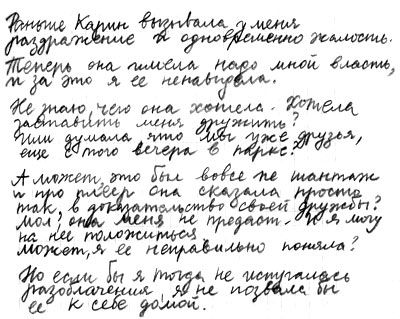 Раньше Карин вызывала у меня
раздражение и одновременно жалость.
Теперь она имела надо мной власть,
и за это я ее ненавидела.
Не знаю, чего она хотела. Хотела
заставить меня дружить?
Или думала, что мы уже друзья,
еще с того вечера в парке?
А может, это был вовсе не шантаж
и про плеер она сказала просто
так, в доказательство своей дружбы?
Мол, она меня не предаст. И я могу
на нее положиться.
Может, я ее неправильно поняла?
Но если бы я тогда не испугалась
разоблачения, я не позвала бы
ее к себе домой.